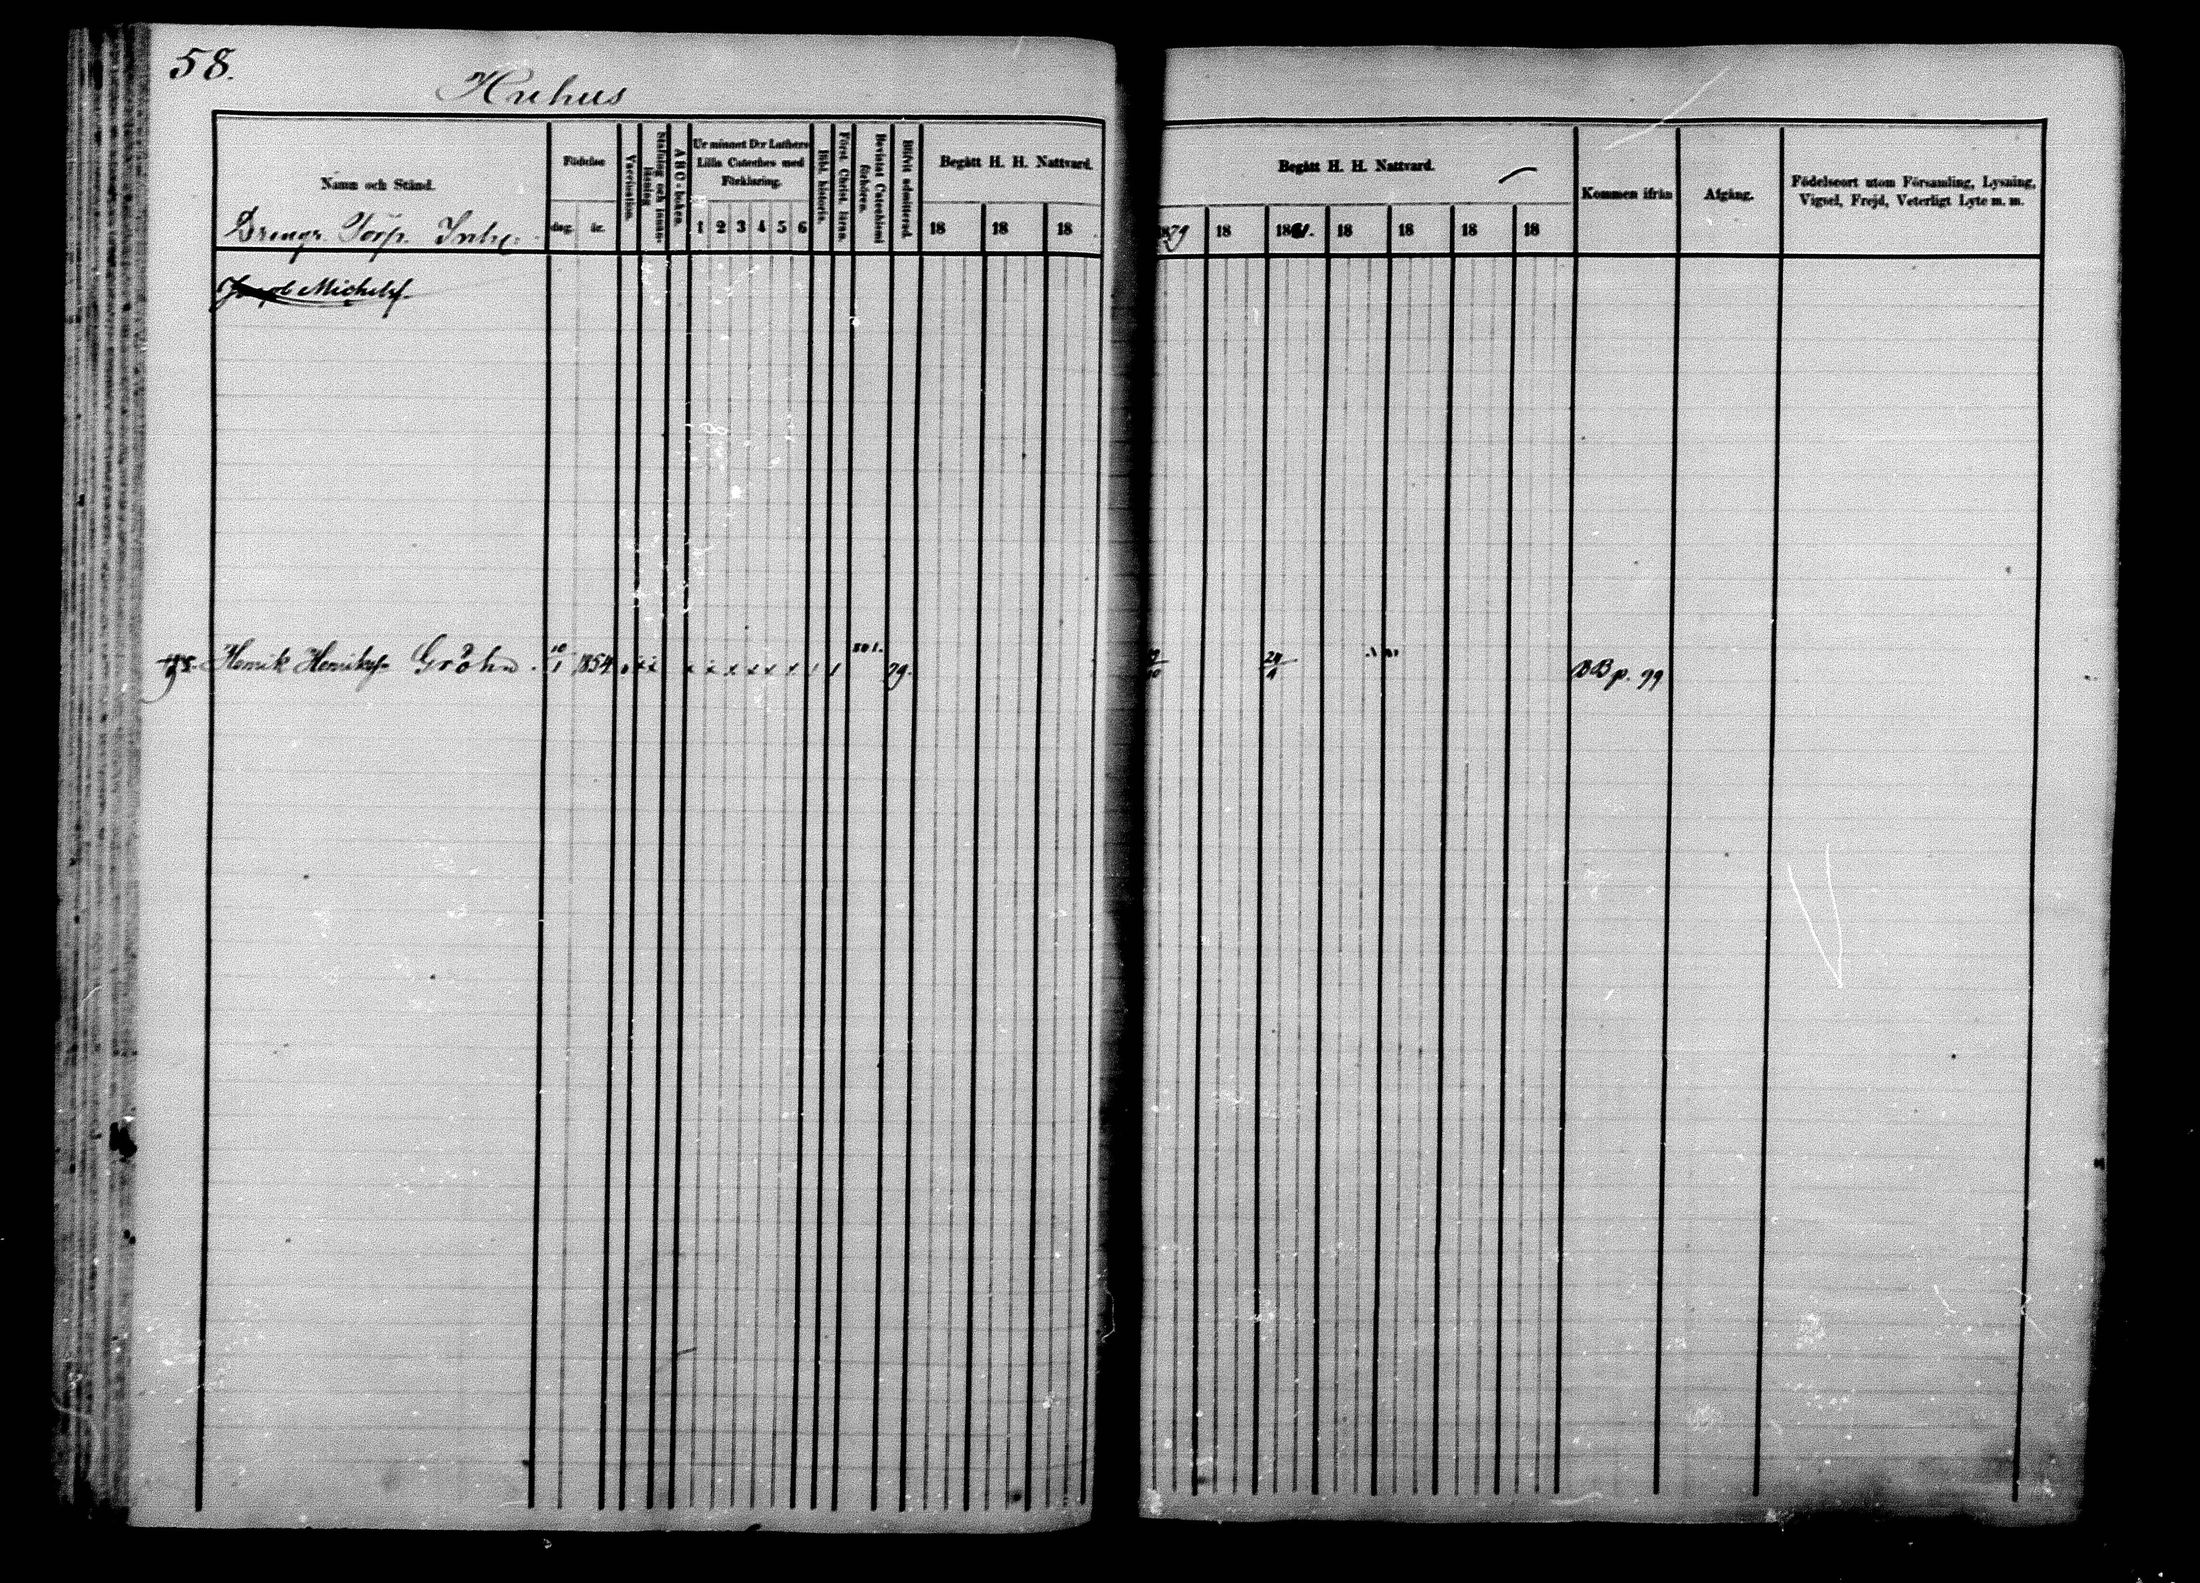 58.
Huhus
Namn och Stånd.
Födelse
dag.
år.
Vaccination.
Stafning och innanläsning
A B C - boken.
Ur minnet D:r Luthers
Lilla Cateches med
Förklaring.
1 2 3 4 5 6
Bibl. historia.
Först. Christ. läran.
Bevistat Catechismi förhören.
Blifvit admitterad.
Begått H. H. Nattvard.
18 18 18
Begått H. H. Nattvard.
1879 18 1881. 18 18 18 18
Kommen ifrån
Afgång.
Födelseort utom Församling, Lysning,
Vigsel, Frejd, Veterligt Lyte m. m.
Drengr. Torp. Inhy:
Jacob Michelsf.
Henrik Henriksf. Gröhn. 10/1 1854 x x x x x x x 1 1 801. 79. 24/4 BB p. 99